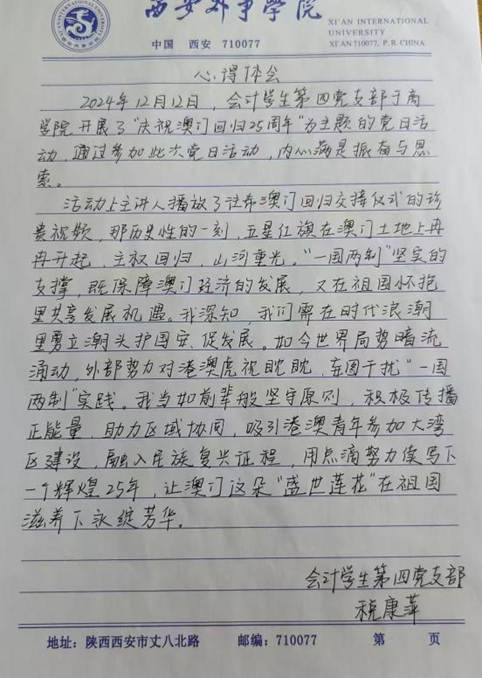 西安外事学院
XI'AN INTERNATIONAL
UNIVERSITY
XI'AN 710077, P. R. CHINA
中国 西安 710077
心得体会
2024年12月12日，会计学生第四党支部于商
学院开展了“庆祝澳门回归25周年”为主题的党日活
动，通过参加此次党日活动，内心满是振奋与思
索。
活动上主讲人播放了往希澳门回归交接仪式的珍
贵视频，那历史性的一刻，五星红旗在澳门土地上冉
冉升起，主权回归，山河重光。“一国两制”坚实的
支撑，既保障澳门经济的发展，又在祖国怀抱
里共享发展机遇。我深知，我们需在时代浪潮
里勇立潮头护国安、促发展。如今世界局势暗流
涌动，外部势力对港澳虎视眈眈，妄图干扰“一国
两制”实践。我当如前辈般坚守原则，积极传播
正能量，助力区域协同，吸引港澳青年参加大湾
区建设，融入民族复兴征程，用点滴努力续写下
一个辉煌25年，让澳门这朵“盛世莲花”在祖国
滋养下永绽芳华。
会计学生第四党支部
税康萍
地址：陕西西安市丈八北路 邮编：710077 第 页